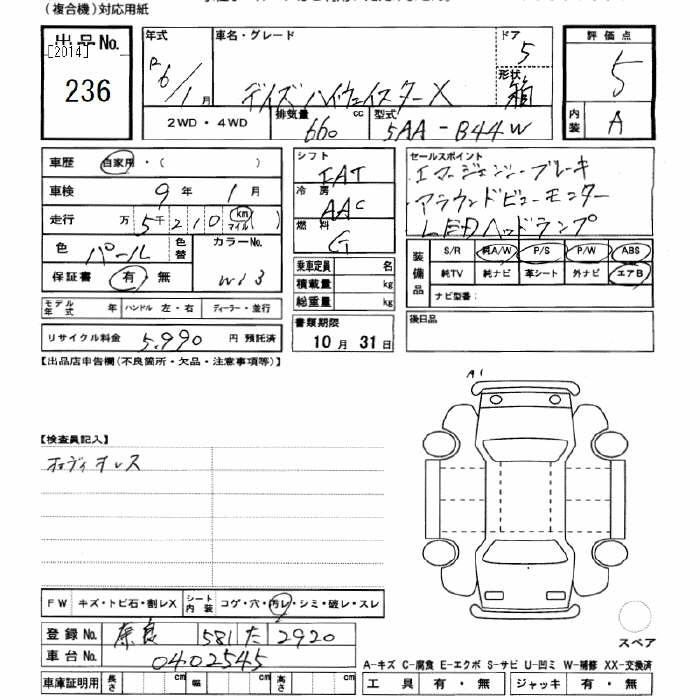 (複合機)対応用紙
出品No.
[2014]
236
年式
R6/1月
車名・グレード
デイズ ハイウェイスターX
ドア
5
形状
箱
2WD・4WD
排気量
660 cc
型式
5AA-B44W
評価点
5
内装
A
車歴 自家用・( )
車検 9年 1月
走行 万5千210 (km マイル)
色 パール 色替
カラーNo.
W13
保証書 有・無
モデル年式 年 ハンドル 左・右 ディーラー・並行
リサイクル料金 5,990 円 預託済
シフト
IAT
冷房
AAC
燃料
G
乗車定員 名
積載量 kg
総重量 kg
書類期限
10月31日
セールスポイント
エマージェンシーブレーキ
アラウンドビューモニター
LEDヘッドランプ
装備品
S/R 純A/W P/S P/W ABS
純TV 純ナビ 革シート 外ナビ エアB
ナビ型番:
後日品
【出品店申告欄(不良箇所・欠品・注意事項等)】
A1
【検査員記入】
ボディオレス
FW キズ・トビ石・割レX シート内装 コゲ・穴・汚レ・シミ・破レ・スレ
登録No. 奈良 581 た 2920
車台No. 0402545
車庫証明用 長さ cm 幅 cm 高さ cm
スペア
A-キズ C-腐食 E-エクボ S-サビ U-凹ミ W-補修 XX-交換済
工具 有・無 ジャッキ 有・無